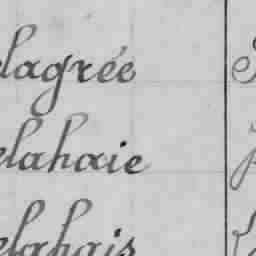 elagrée
elahaie
elahais